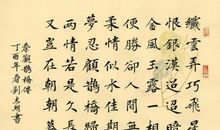 纖雲弄巧飛星
恨銀漢迢迢暗
金風玉露一相
便勝卻人間無
柔情似水佳期
夢忍顧鵲橋歸
兩情若是久長
秦觀鵲橋仙
丁酉年春劉志明書